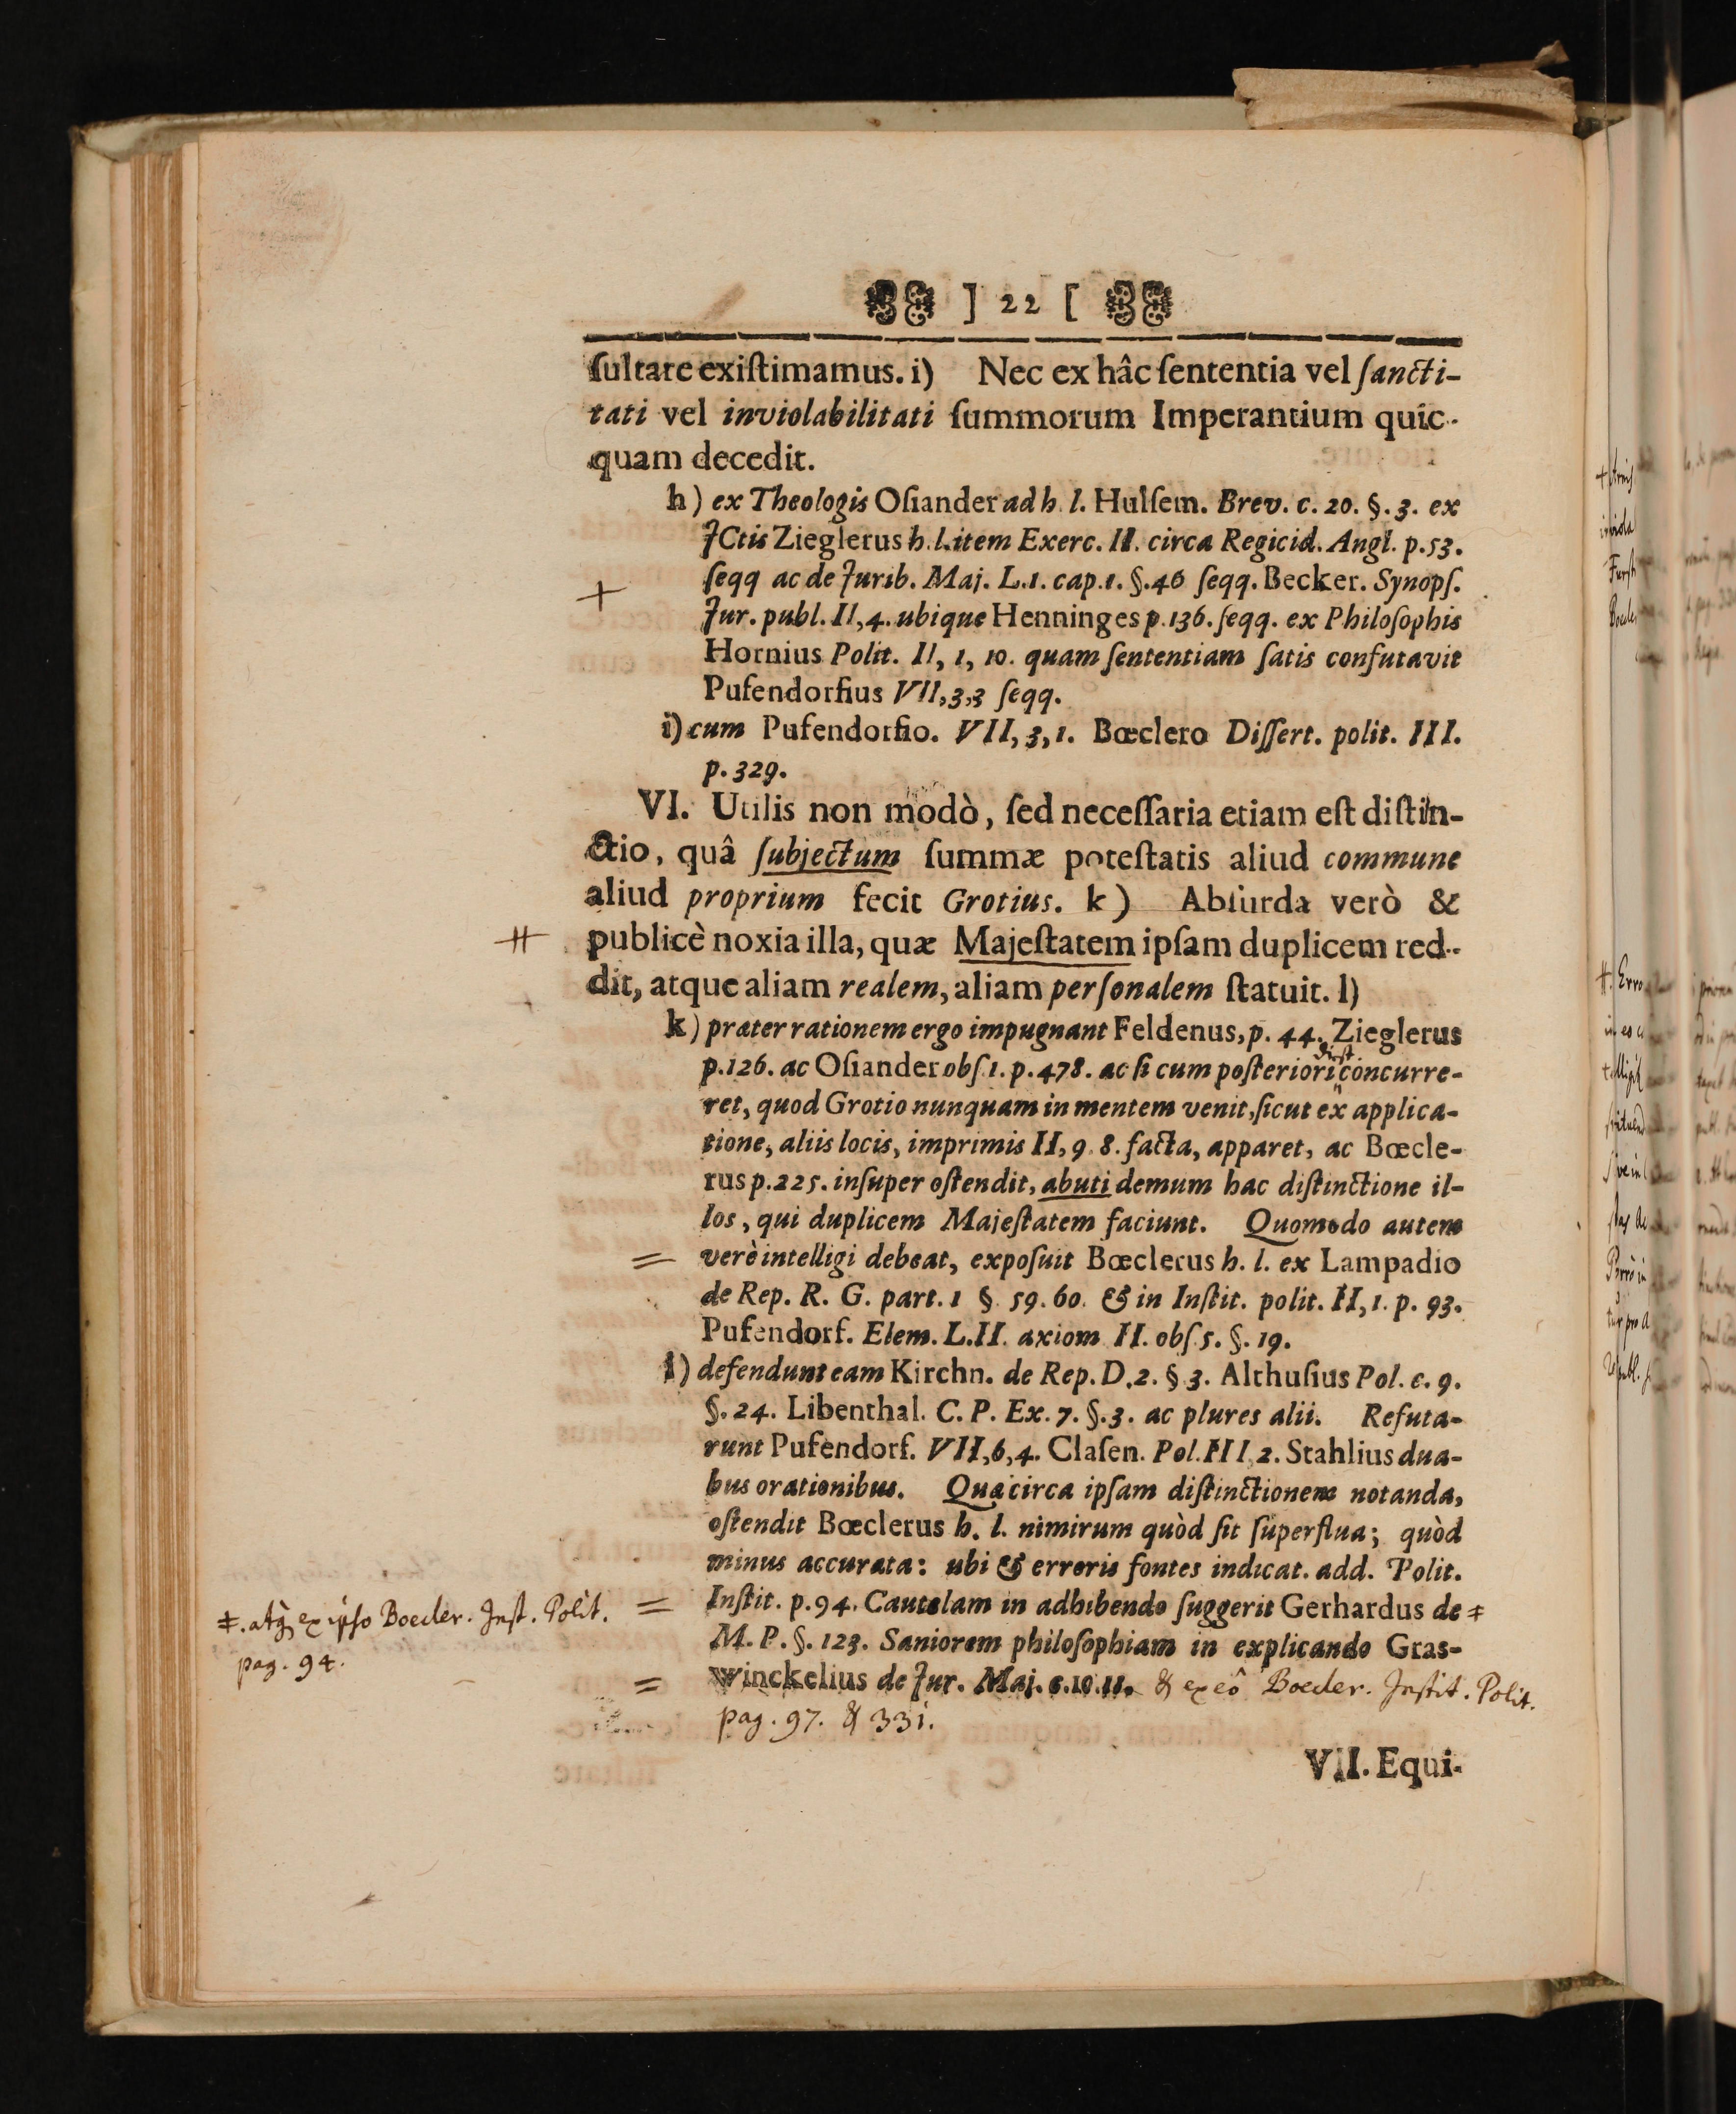 ] 22 [
ſultare exiſtimamus. i) Nec ex hâc ſententia vel ſancti-
tati vel inviolabilitati ſummorum Imperantium quic-
quam decedit.
h) ex Theologis Oſiander ad h. l. Hulſem. Brev. c. 20. §. 3. ex
JCtis Zieglerus h. l. item Exerc. II. circa Regicid. Angl. p. 53.
ſeqq ac de Jurib. Maj. L. 1. cap. 1. §. 46 ſeqq. Becker. Synopſ.
Jur. publ. II, 4. ubique Henninges p. 136. ſeqq. ex Philoſophis
Hornius Polit. II, 1, 10. quam ſententiam ſatis confutavit
Pufendorfius VII, 3, 3 ſeqq.
i) cum Pufendorfio. VII, 3, 1. Bœclero Diſſert. polit. III.
p. 329.
VI. Utilis non modò, ſed neceſſaria etiam eſt diſtin-
ctio, quâ ſubjectum ſummæ poteſtatis aliud commune
aliud proprium fecit Grotius. k) Abſurda verò &
publicè noxia illa, quæ Majeſtatem ipſam duplicem red-
dit, atque aliam realem, aliam perſonalem ſtatuit. l)
k) præter rationem ergo impugnant Feldenus, p. 44. Zieglerus
p. 126. ac Oſiander obſ. 1. p. 478. ac ſi cum poſteriori concurre-
ret, quod Grotio nunquam in mentem venit, ſicut ex applica-
tione, aliis locis, imprimis II, 9. 8. facta, apparet, ac Bœcle-
rus p. 225. inſuper oſtendit, abuti demum hac diſtinctione il-
los, qui duplicem Majeſtatem faciunt. Quomodo autem
verè intelligi debeat, expoſuit Bœclerus h. l. ex Lampadio
de Rep. R. G. part. 1 §. 59. 60. & in Inſtit. polit. II, 1. p. 93.
Pufendorf. Elem. L. II. axiom II. obſ. 5. §. 19.
l) defendunt eam Kirchn. de Rep. D. 2. § 3. Althuſius Pol. c. 9.
§. 24. Libenthal. C. P. Ex. 7. §. 3. ac plures alii. Refuta-
runt Pufendorf. VII, 6, 4. Claſen. Pol. III, 2. Stahlius dua-
bus orationibus. Quæ circa ipſam diſtinctionem notanda,
oſtendit Bœclerus h. l. nimirum quòd ſit ſuperflua; quòd
minus accurata: ubi & erroris fontes indicat. add. Polit.
Inſtit. p. 94. Cautelam in adhibendo ſuggerit Gerhardus de ‡
‡. atq; ex ipso Boecler. Inst. Polit.
pag. 94.
M. P. §. 123. Saniorem philoſophiam in explicando Gras-
winckelius de Jur. Maj. c. 10. 11. & ex eô Boecler. Instit. Polit.
pag. 97. & 331.
VII. Equi-